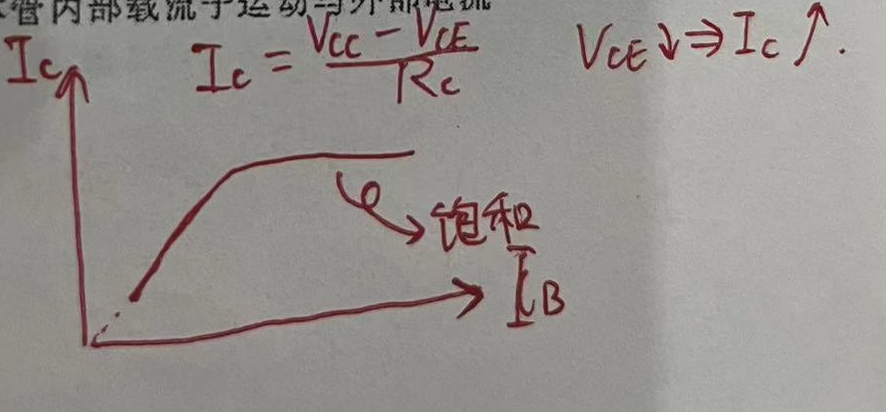 管内部载流子运动与外部电流
Ic
Ic = (Vcc - VCE) / Rc
VCE ↓ ⇒ Ic ↑.
饱和
IB